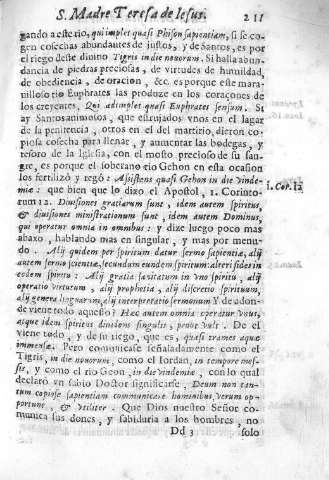 S. Madre Teresa de Iesus. 211
gando a este rio, qui implet quasi Phison sapientiam, si se co-
gen cosechas abundantes de justos, y de Santos, es por
el riego deste divino Tigris in die novorum. Si halla abun-
dancia de piedras preciosas, de virtudes de humildad,
de obediencia, de oracion, &c. es porque este mara-
villoso rio Euphrates las produce en los coraçones de
los creyentes, Qui adimplet quasi Euphrates sensum. Si
ay Santos animosos, que estrujados vnos en el lagar
de la penitencia, otros en el del martirio, dieron co-
piosa cosecha para llenar, y aumentar las bodegas, y
tesoro de la Iglesia, con el mosto precioso de su san-
gre, es porque el soberano rio Gehon en esta ocasion
los fertilizó y regó: Assistens quasi Gehon in die vinde-
miæ: que bien que lo dixo el Apostol, 1. Corinto-
rum 12. Divisiones gratiarum sunt, idem autem spiritus,
& divisiones ministrationum sunt, idem autem Dominus,
qui operatur omnia in omnibus: y dize luego poco mas
abaxo, hablando mas en singular, y mas por menu-
do. Alij quidem per spiritum datur sermo sapientiæ, alij
autem sermo scientiæ, secundum eundem spiritum: alteri fides in
eodem spiritu: Alij gratia sanitatum in vno spiritu, alij
operatio virtutum, alij prophetia, alij discretio spirituum,
alij genera linguarum, alij interpretatio sermonum Y de adon-
de viene todo aquesto? Hæc autem omnia operatur vnus,
atque idem spiritus dividens singulis, prout vult. De el
viene todo, y de su riego, que es, quasi trames aquæ
immensæ. Pero comunicase señaladamente como el
Tigris, in die novorum, como el Iordan, in tempore mes-
sis, y como el rio Geon, in die vindemiæ, con lo qual
declaró vn sabio Doctor significarse, Deum non tan-
tum copiose sapientiam communicare hominibus, verum op-
portune, & vtiliter. Que Dios nuestro Señor co-
munica sus dones, y sabiduria a los hombres, no
Dd 3 solo
1. Cor. 12